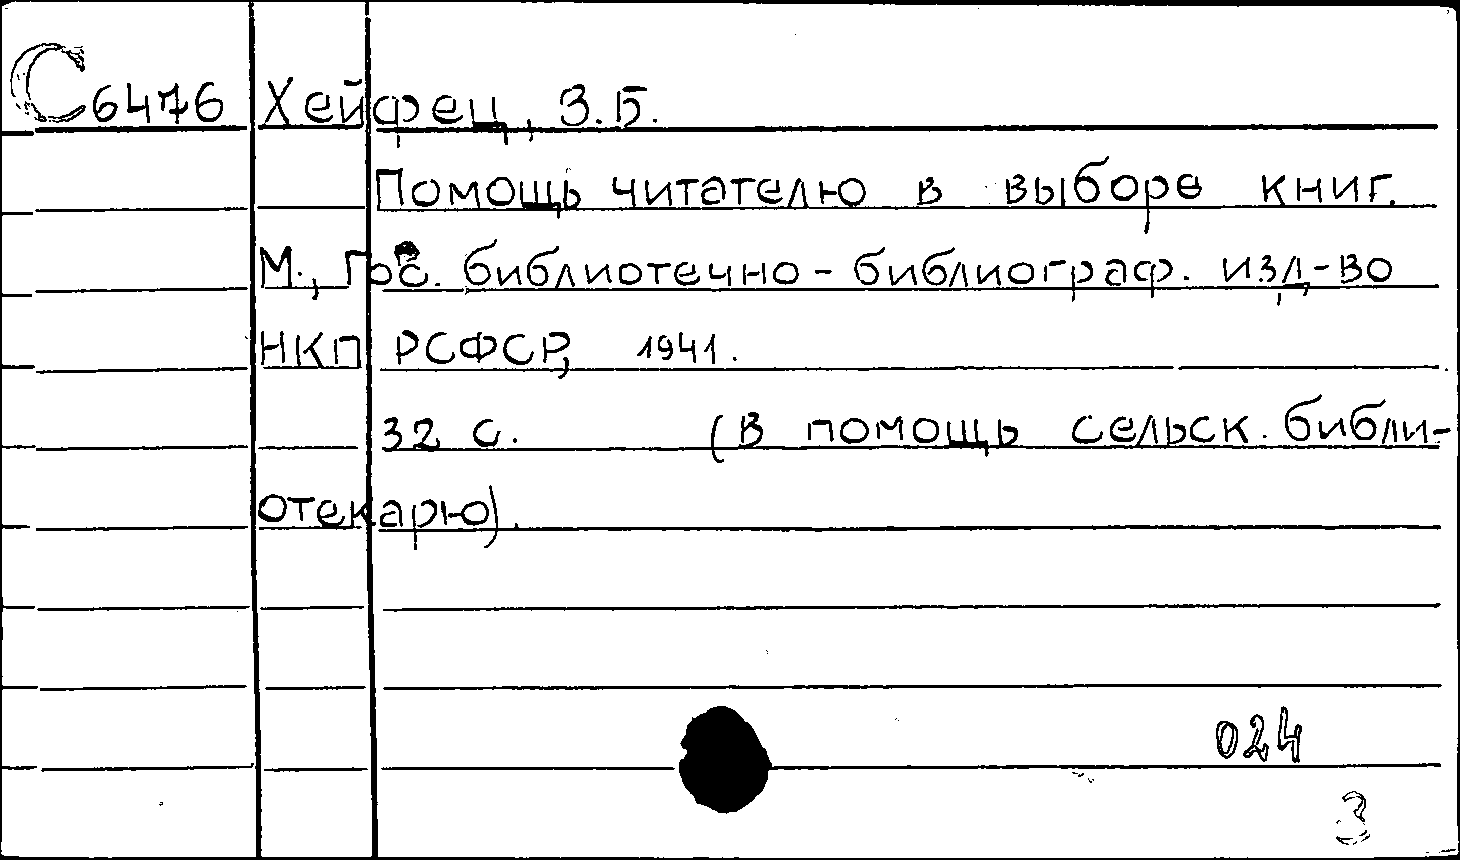 С6476 Хейфец, З.Б.
Помощь читателю в выборе книг.
М., Гос. библиотечно-библиограф. изд-во
НКП РСФСР, 1941.
32 с. (В помощь сельск. библи-
отекарю).
024
3